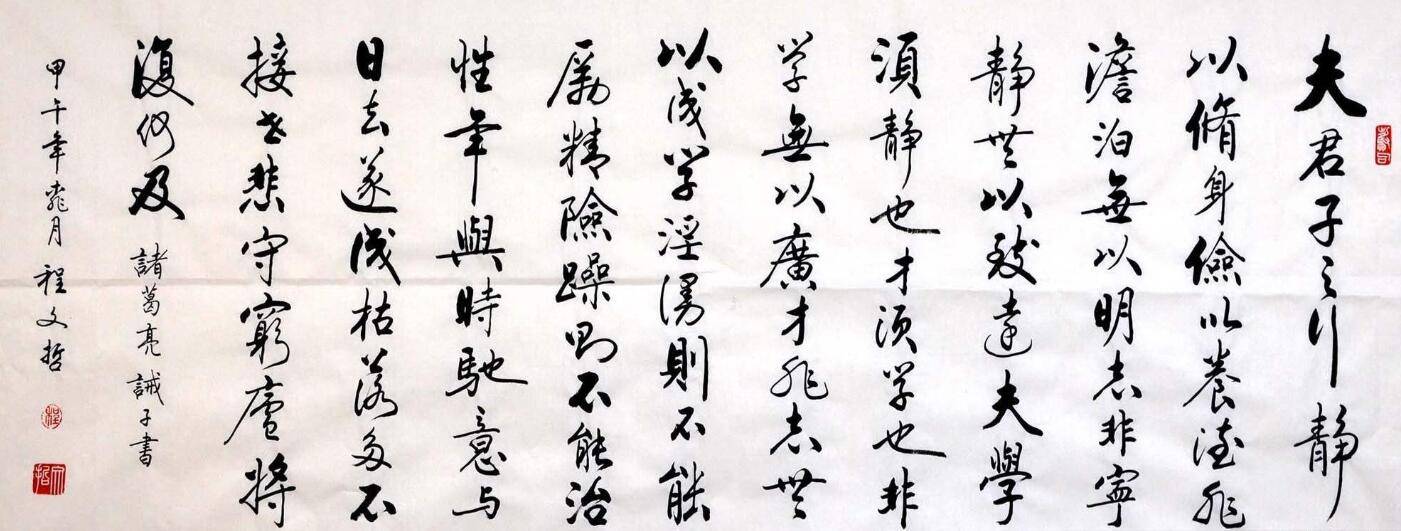 夫君子之行靜
以脩身儉以養德非
澹泊無以明志非寧
靜無以致遠夫學
須靜也才須学也非
学無以廣才非志無
以成学淫漫則不能
勵精險躁則不能治
性年與時馳意与
日去遂成枯落多不
接世悲守窮廬將
復何及 諸葛亮誡子書
甲午年月程文哲
程
文哲